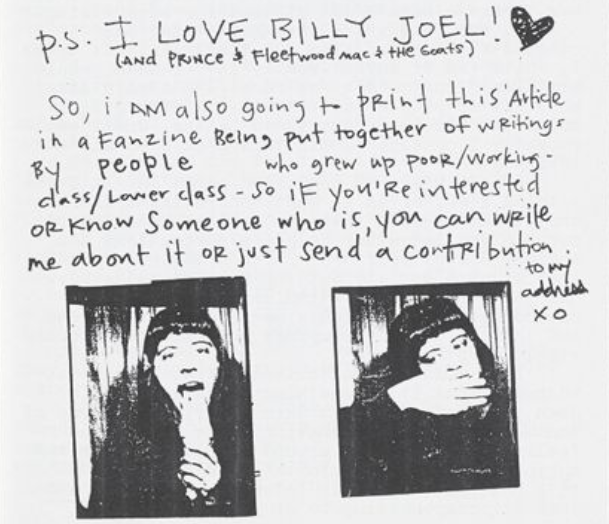 p.s. I LOVE BILLY JOEL!
(AND PRINCE & Fleetwood mac & tHE Scats)
So, i AM also going to pRint this Article
in a Fanzine Being put together of wRitings
By people who grew up pooR/woRking-
class/Lower class - So iF you'Re interested
OR Know Someone who is, you can wRite
me about it oR just send a contRibution.
to my
address
XO